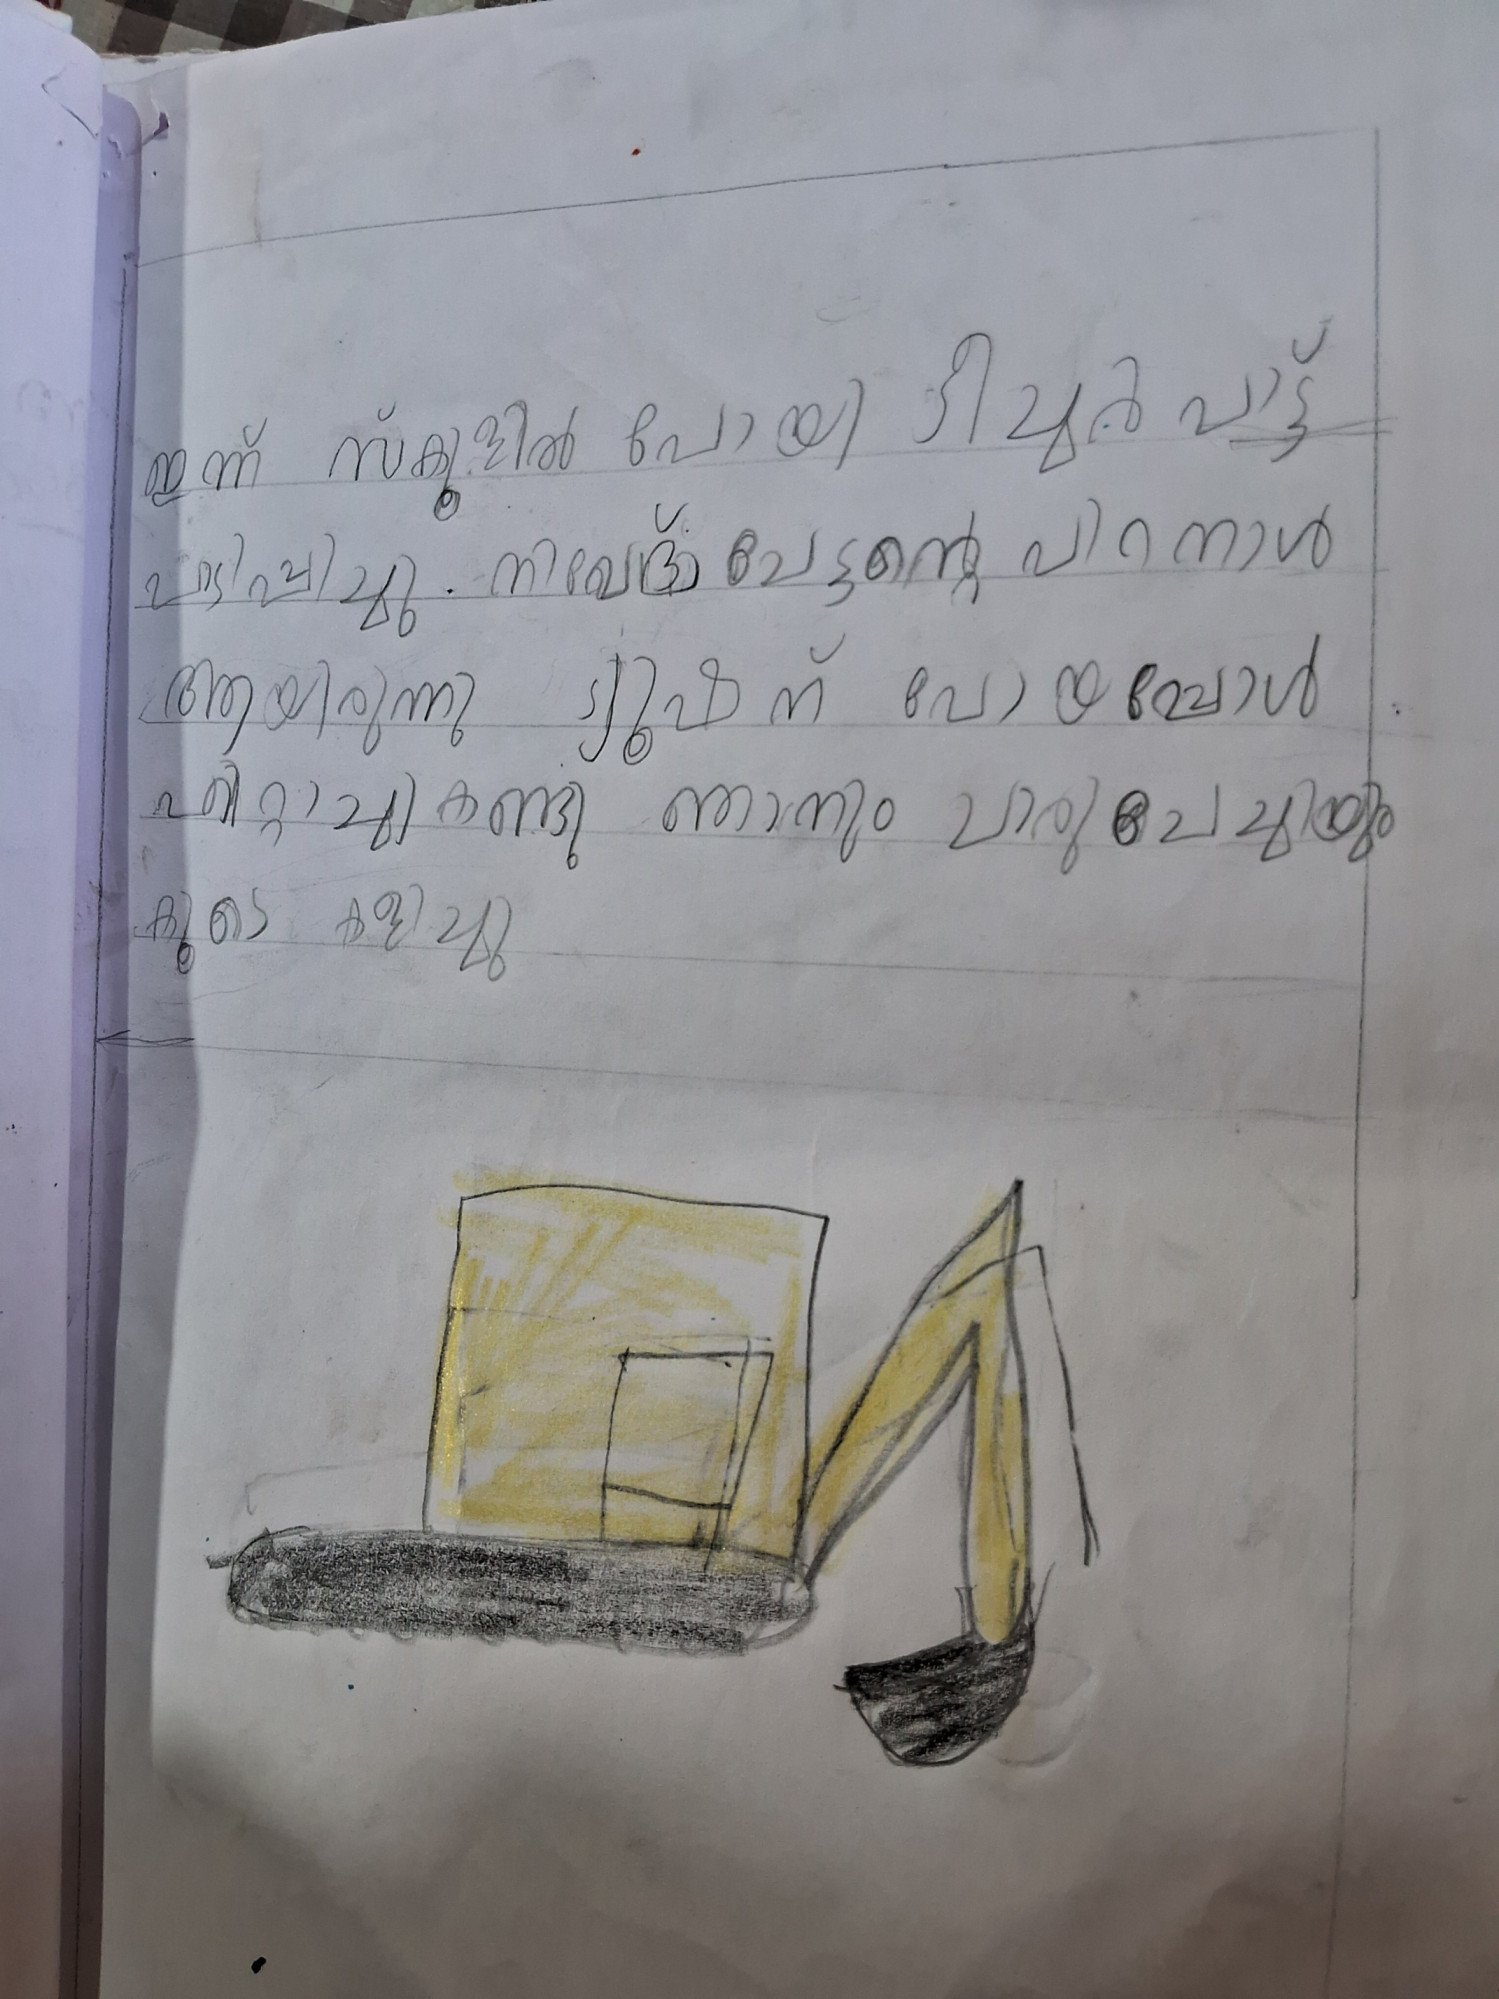 ഇന്ന് സ്കൂളിൽ പോയി ടീച്ചർ പാട്ട്
പഠിപ്പിച്ചു. നിവേദ് ചേട്ടന്റെ പിറനാൾ
ആയിരുന്നു ട്യൂഷന് പോയപ്പോൾ
ഹിറ്റാച്ചി കണ്ടു ഞാനും പാറു ചേച്ചിയും
കൂടെ കളിച്ചു